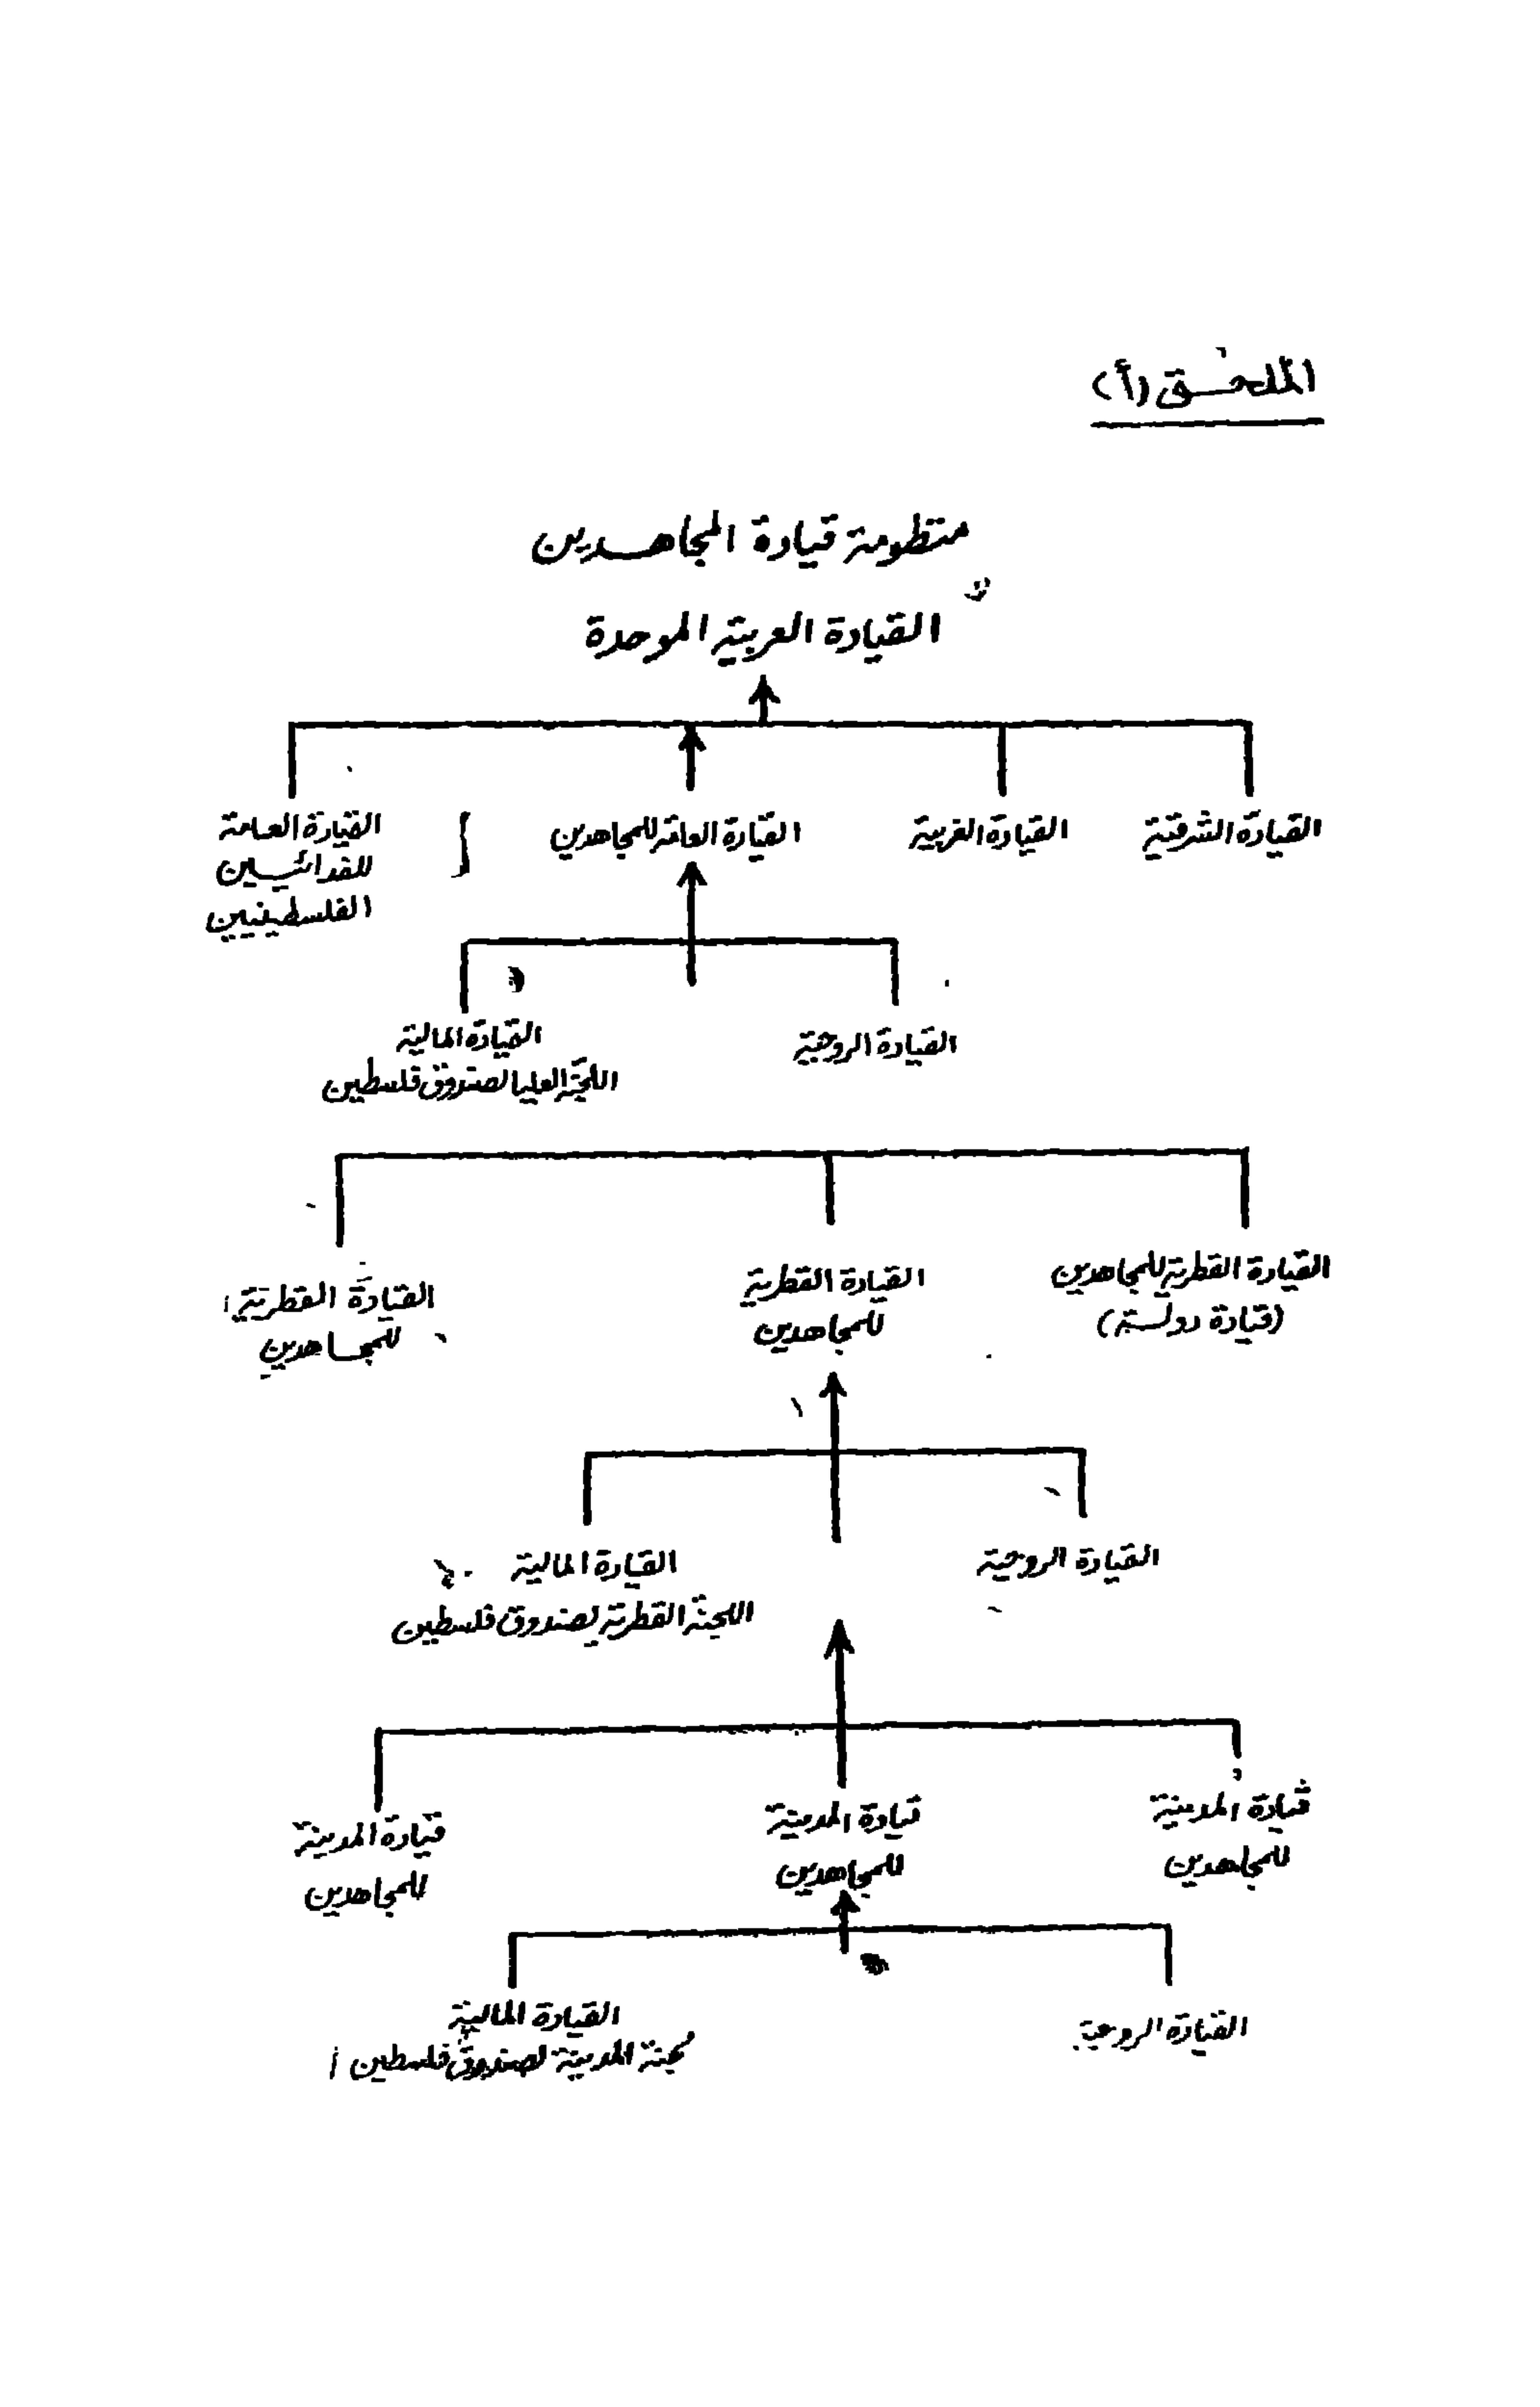 الملحق (أ)
منظومة قيادة المجاهدين
القيادة العربية الموحدة
القيادة الشرقية
القيادة الغربية
القيادة العامة للمجاهدين
القيادة العامة
للفدائيين
الفلسطينيين
القيادة الروحية
القيادة المالية
اللجنة العليا لصندوق فلسطين
القيادة القطرية للمجاهدين
(قيادة دولة)
القيادة القطرية
للمجاهدين
القيادة القطرية
للمجاهدين
القيادة الروحية
القيادة المالية
اللجنة القطرية لصندوق فلسطين
قيادة المدينة
للمجاهدين
قيادة المدينة
للمجاهدين
قيادة المدينة
للمجاهدين
القيادة الروحية
القيادة المالية
لجنة المدينة لصندوق فلسطين